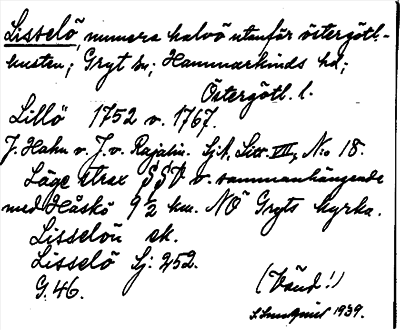 Lisselö, numera halvö utanför östergötl.-
kusten; Gryt sn; Hammarkinds hd;
Östergötl. l.
Lillö 1752 v. 1767.
J. Hahn v. J. v. Rajalin. Sj. A, Litt. VII, No 18.
Läge strax SSV o. sammanhängande
med Håskö 9 1/2 km. NÖ Gryts kyrka.
Lisselön ek.
Lisselö Sj: 252.
G. 46.
(Vänd!)
1939.